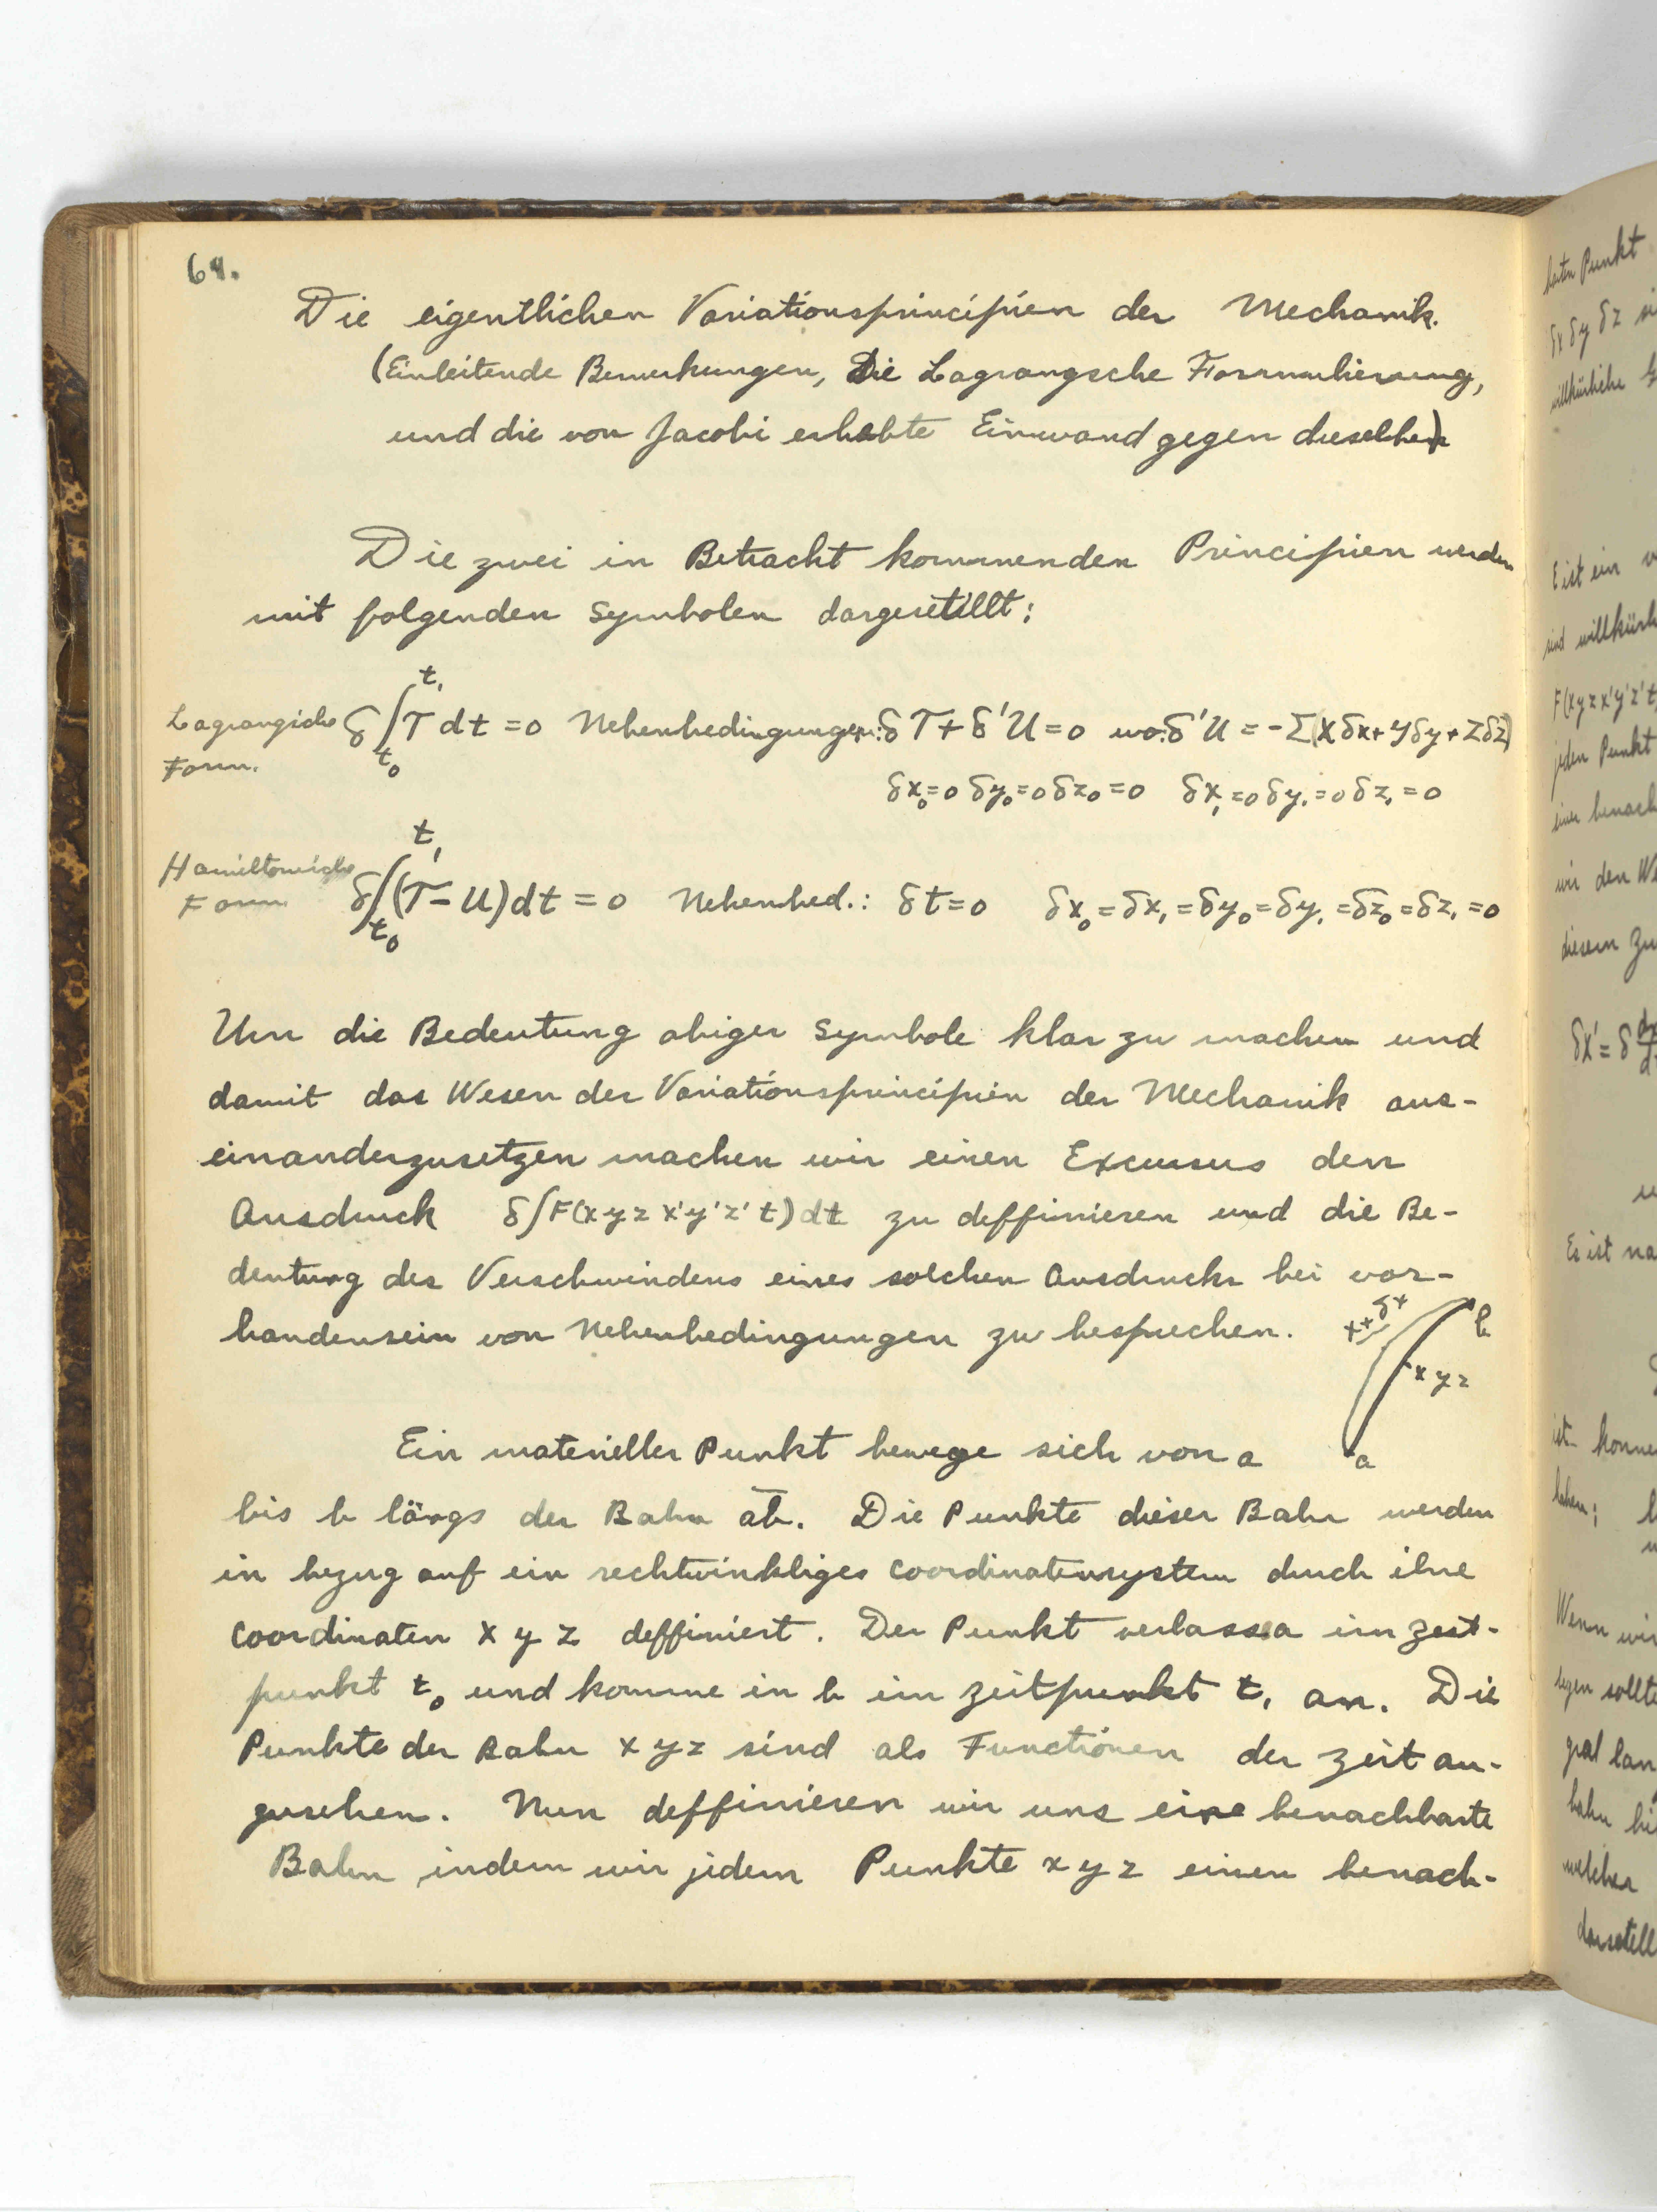 64.
Die eigentlichen Variationsprincipien der Mechanik.
(Einleitende Bemerkungen, Die Lagrangsche Formulierung,
und die von Jacobi erhobte Einwand gegen dieselben)
Die zwei in Betracht kommenden Principien werden
mit folgenden Symbolen dargestellt:
Lagrangische Form. δ∫ₜ₀ᵗ¹ T dt = 0 Nebenbedingungen: δT + δ'U = 0 wo: δ'U = -Σ(Xδx + Yδy + Zδz)
δx₀=0 δy₀=0 δz₀=0 δx₁=0 δy₁=0 δz₁=0
Hamiltonische Form δ∫ₜ₀ᵗ¹ (T-U)dt = 0 Nebenbed.: δt=0 δx₀=δx₁=δy₀=δy₁=δz₀=δz₁=0
Um die Bedeutung obiger Symbole klar zu machen und
damit das Wesen der Variationsprincipien der Mechanik aus-
einanderzusetzen machen wir einen Excursus den
Ausdruck δ∫F(x y z x' y' z' t)dt zu deffinieren und die Be-
deutung des Verschwindens eines solchen Ausdrucks bei vor-
handensein von Nebenbedingungen zu besprechen.
x+δx
b
x y z
a
Ein materieller Punkt bewege sich von a
bis b längs der Bahn ab. Die Punkte dieser Bahn werden
in bezug auf ein rechtwinkliges Coordinatensystem durch ihre
Coordinaten x y z deffiniert. Der Punkt verlasse a im Zeit-
punkt t₀ und komme in b im Zeitpunkt t₁ an. Die
Punkte der Bahn x y z sind als Functionen der Zeit an-
zusehen. Nun deffinieren wir uns eine benachbarte
Bahn indem wir jedem Punkte x y z einen benach-